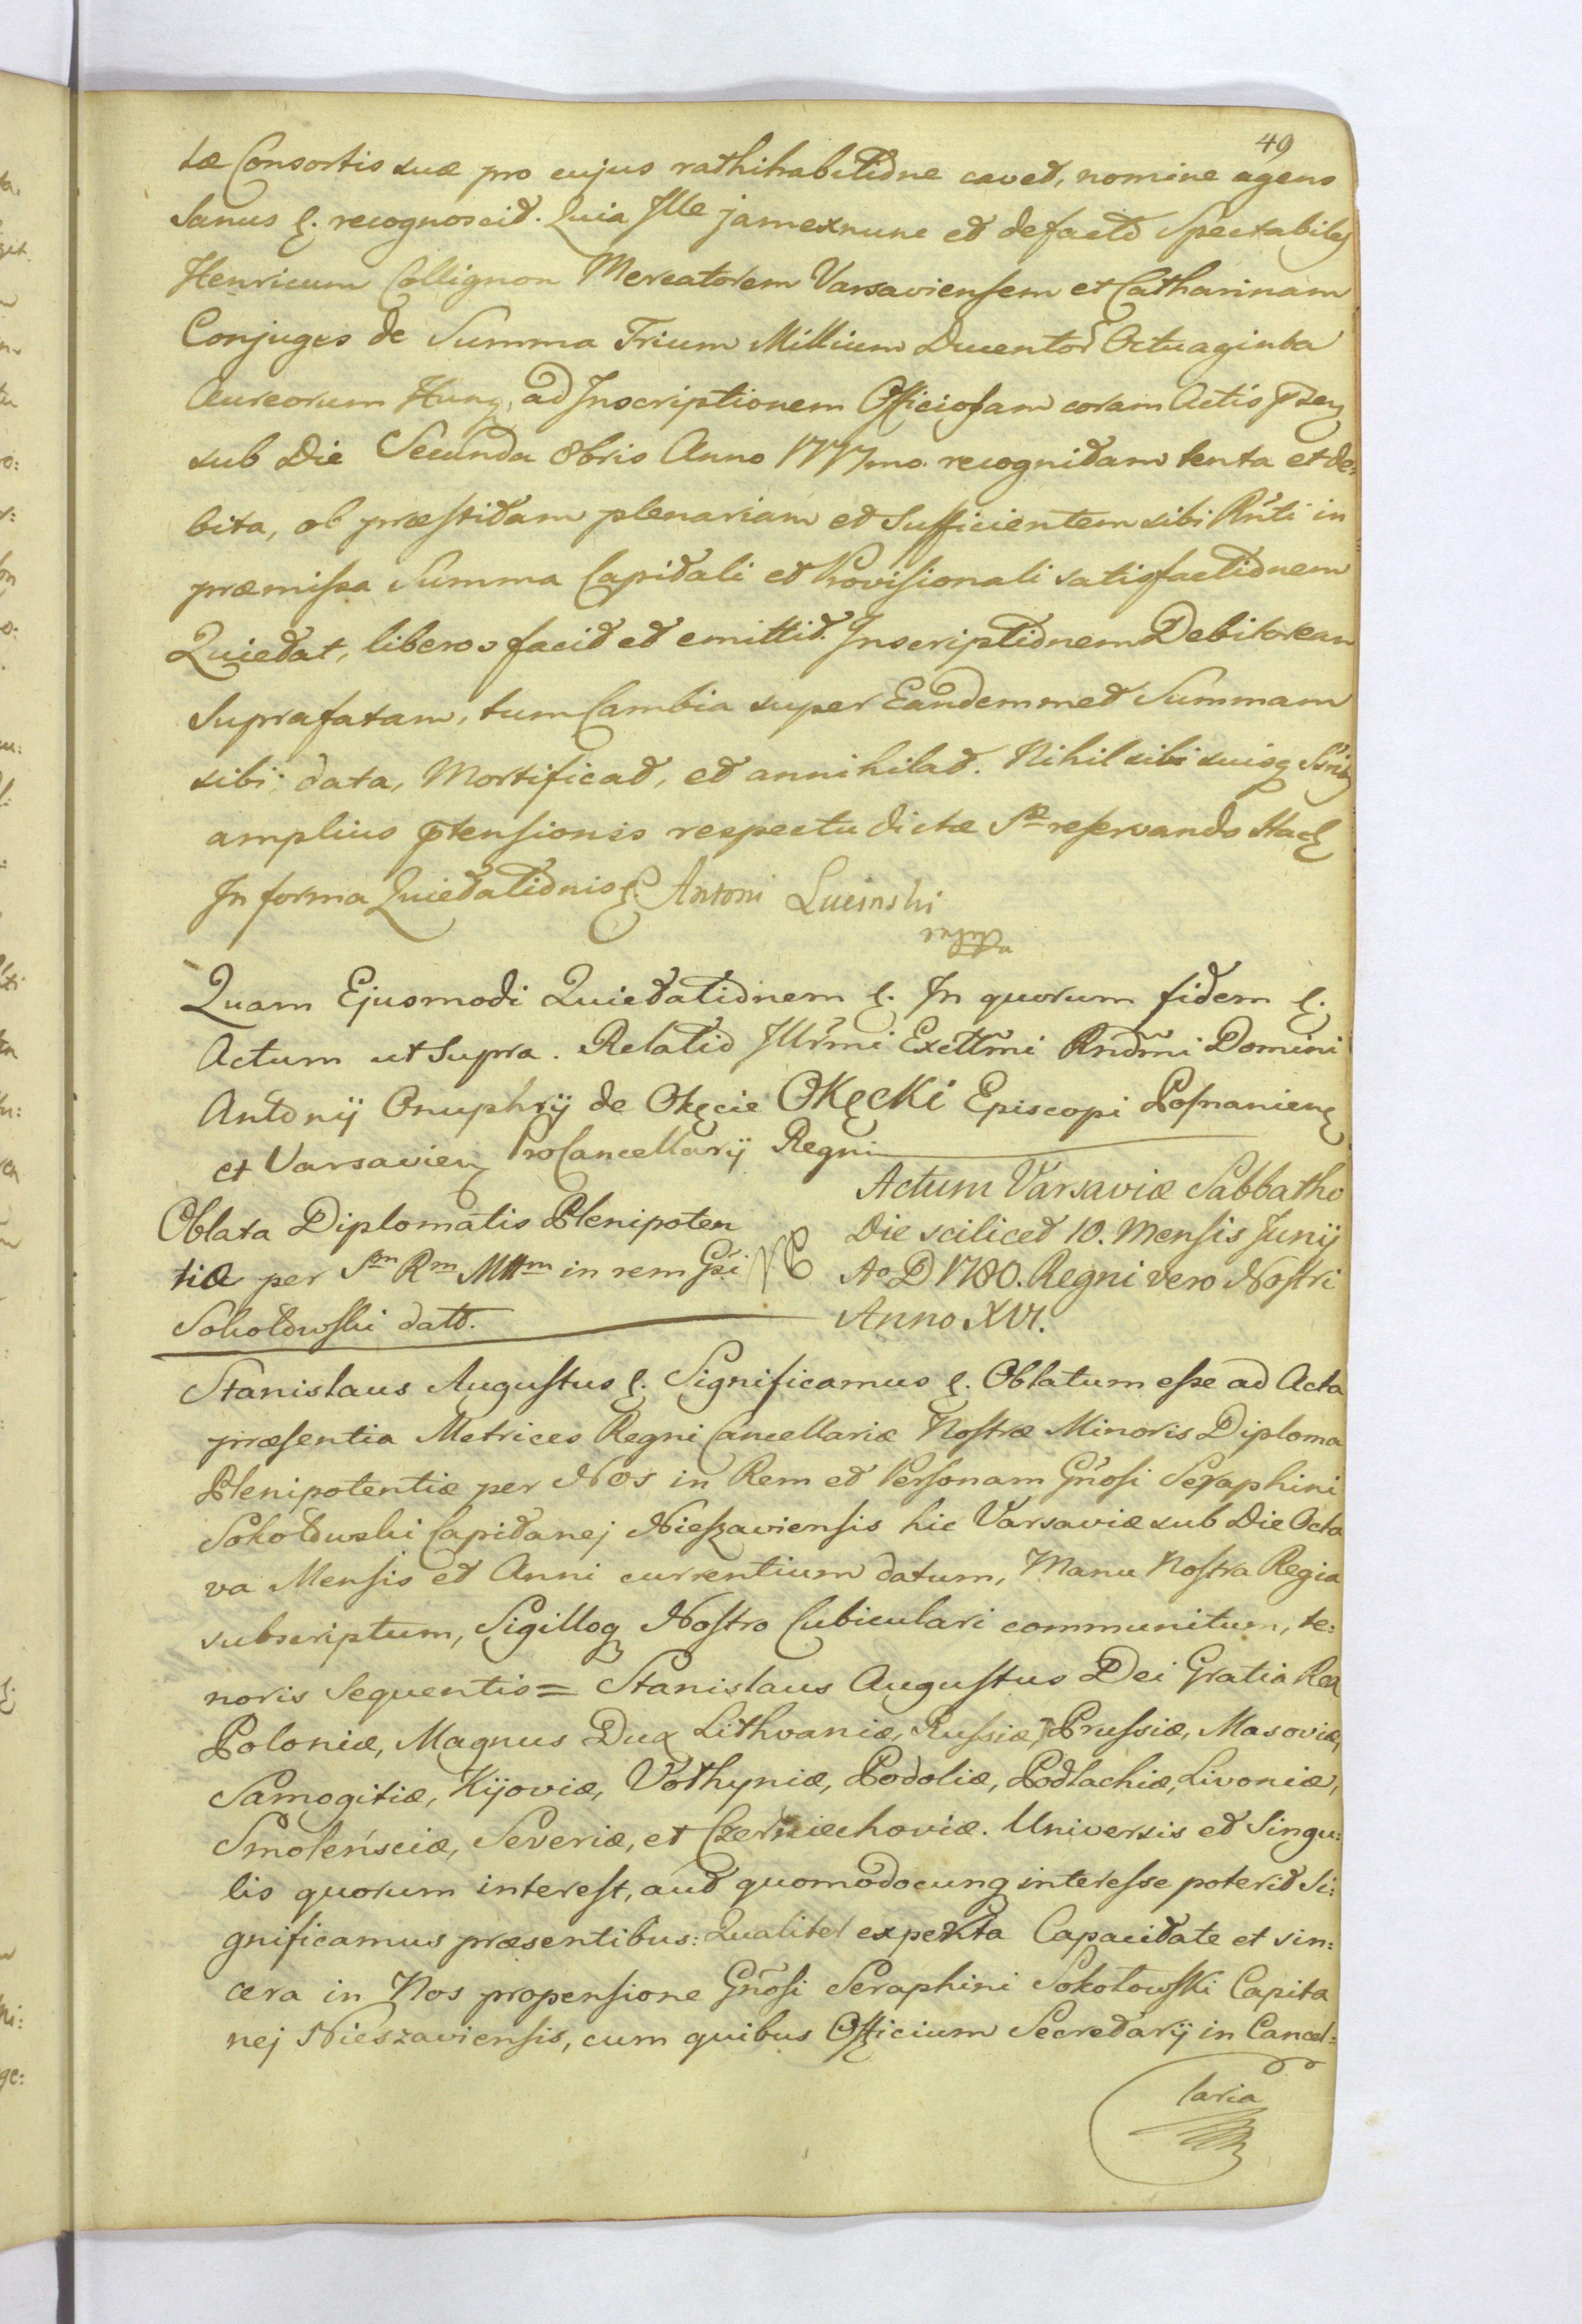 49
tæ Consortis suæ pro cujus rathihabitiōne cavet, nomine agens
Sanus &. recognoscit. Quia Ille jamexnunc et defacto Spectabiles
Henricum Collignon Mercatorem Varsaviensem et Catharinam
Conjuges de Summa Trium Millium Ducentor Octuaginta
Aureorum Hung, ad Inscriptionem Officiosam coram Actis
sub Die Secunda 8bris Anno 1777mo. recognitam tenta et de:
bita, ob præstitam plenariam et Sufficientem sibi Rńti in
præmissa Summa Capitali et Provisionali satisfactiōnem
Quietat, liberos facit et emittit. Inscriptiōnem Debitoream
Suprafatam, tum Cambia super Eandemmet Summam
sibi data, Mortificat, et annihilat. Nihil sibi suisq
amplius ptensionis respectu dictæ Sæ reservando Hac
In forma Quietatiōnis &. Antoni Lucinski
Quam Ejusmodi Quietatiōnem &. In quorum fidem &.
Actum ut Supra. Relatio Illrm̃i Excttm̃i Rndm̃i Domini
Antonij Onuphrij de Okęcie OKęcKi Episcopi Posnanien
et Varsavien ProCancellarij Regni
Oblata Diplomatis Plenipoten
tiæ per Sm Rm Mttm in rem Gsi
Sokołowski dato.
Actum Varsaviæ Sabbatho
Die scilicet 10. Mensis Junij
Ao D 1780. Regni vero Nostri
Anno XVI.
Stanislaus Augustus &. Significamus &. Oblatum esse ad Acta
præsentia Metrices Regni Cancellariæ Nostræ Minoris Diploma
Plenipotentiæ per Nos in Rem et Personam Gñosi Seraphini
Sokołowski Capitanej Nieszaviensis hic Varsaviæ sub Die Octa
va Mensis et Anni currentium datum, Manu Nostra Regia
subscriptum, Sigilloq Nostro Cubiculari communitum, te:
noris Sequentis = Stanislaus Augustus Dei Gratia Rex
Poloniæ, Magnus Dux Lithvaniæ, Russiæ, Prussiæ, Masoviæ,
Samogitiæ, Kijoviæ, Vołhyniæ, Podoliæ, Podlachiæ, Livoniæ,
Smolenściæ, Severiæ, et Czerniechoviæ. Universis et Singu:
lis quorum interest, aut quomodocunq interesse poterit Si:
gnificamus præsentibus: Qualiter experta Capacitate et sin:
cera in Nos propensione Gñosi Seraphini Sokołowski Capita
nej Nieszaviensis, cum quibus Officium Secretarij in Cancel=
laria